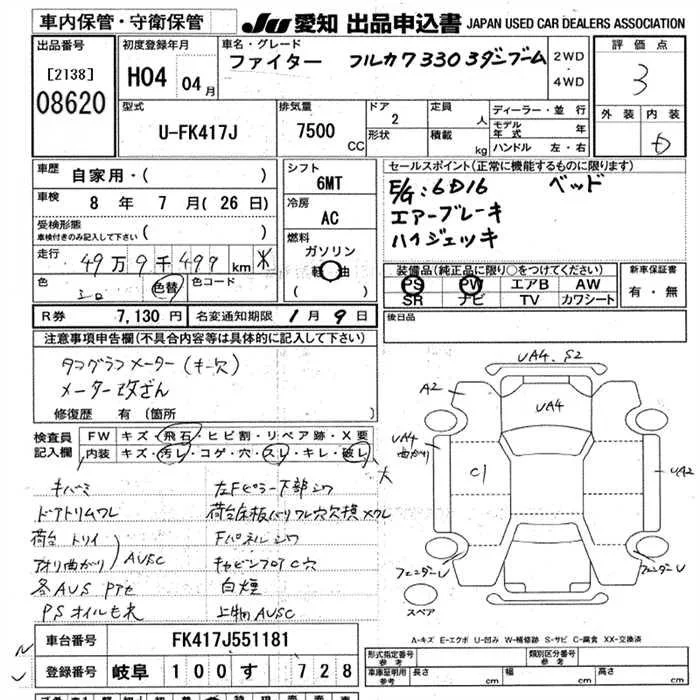 車内保管・守衛保管
JU 愛知 出品申込書 JAPAN USED CAR DEALERS ASSOCIATION
出品番号
[2138]
08620
初度登録年月
H04 04月
車名・グレード
ファイター フルカワ3303ダンブーム
2WD
・
4WD
評価点
3
外装 内装
D
型式
U-FK417J
排気量
7500 CC
ドア
2
形状
定員
人
積載
kg
ディーラー・並行
モデル年式 年
ハンドル 左・右
車歴
自家用・( )
車検
8 年 7 月 ( 26 日)
受検形態
車検付きのみ記入して下さい ( )
走行
49万9千499 km ※
色
シロ
色替
色コード
シフト
6MT
冷房
AC
燃料
ガソリン
軽油
( )
セールスポイント(正常に機能するものに限ります)
E/G:6D16 ベッド
エアーブレーキ
ハイジェッキ
装備品(純正品に限り○をつけてください)
PS PW エアB AW
SR ナビ TV カワシート
新車保証書
有・無
R券 7,130 円
名変通知期限 1月9日
後日品
注意事項申告欄(不具合内容等は具体的に記入して下さい)
タコグラフメーター(キー欠)
メーター改ざん
修復歴 有(箇所 )
検査員
記入欄
FW キズ・飛石・ヒビ割・リペア跡・X要
内装 キズ・汚レ・コゲ・穴・スレ・キレ・破レ 大
キバミ
ドアトリムワレ
荷台 トリイ
アオリ曲がり AUSC
各AUS
PSオイルもれ
左Fピラー下部シワ
Fパネルシワ
キャビンフロアC穴
白煙
上物AUSC
UA4. S2
A2
UA4
UA4
曲がり
C1
UA2
フェンダーU
フェンダーU
スペア
A-キズ E-エクボ U-凹み W-補修跡 S-サビ C-腐食 XX-交換済
車台番号 FK417J551181
登録番号 岐阜 100 す 728
形式指定番号
参考
類別区分番号
参考
車庫証明用
参考
長さ cm 幅 cm 高さ cm